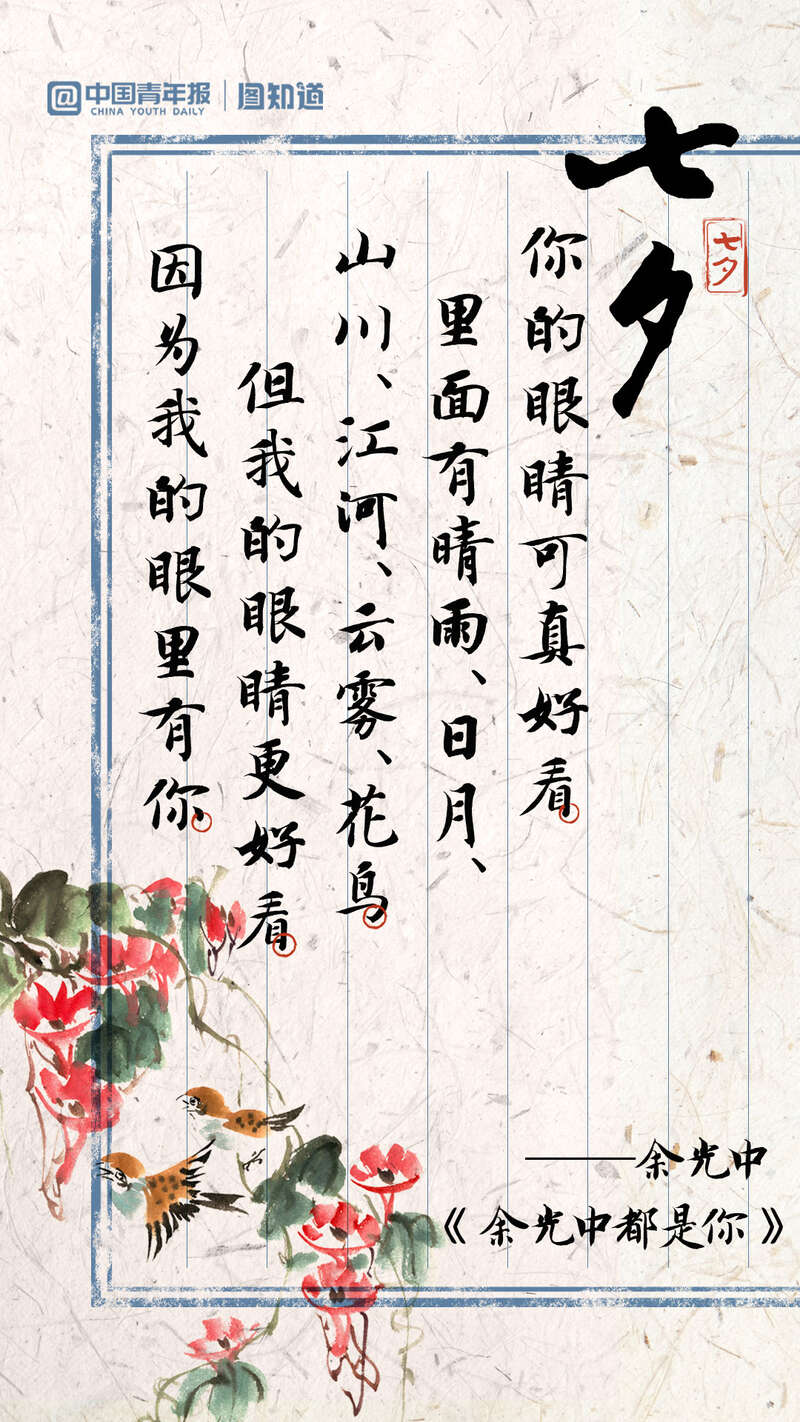 @中国青年报 | 图知道
CHINA YOUTH DAILY
七夕
七夕
你的眼睛可真好看。
里面有晴雨、日月、
山川、江河、云雾、花鸟。
但我的眼睛更好看。
因为我的眼里有你。
——余光中
《余光中都是你》